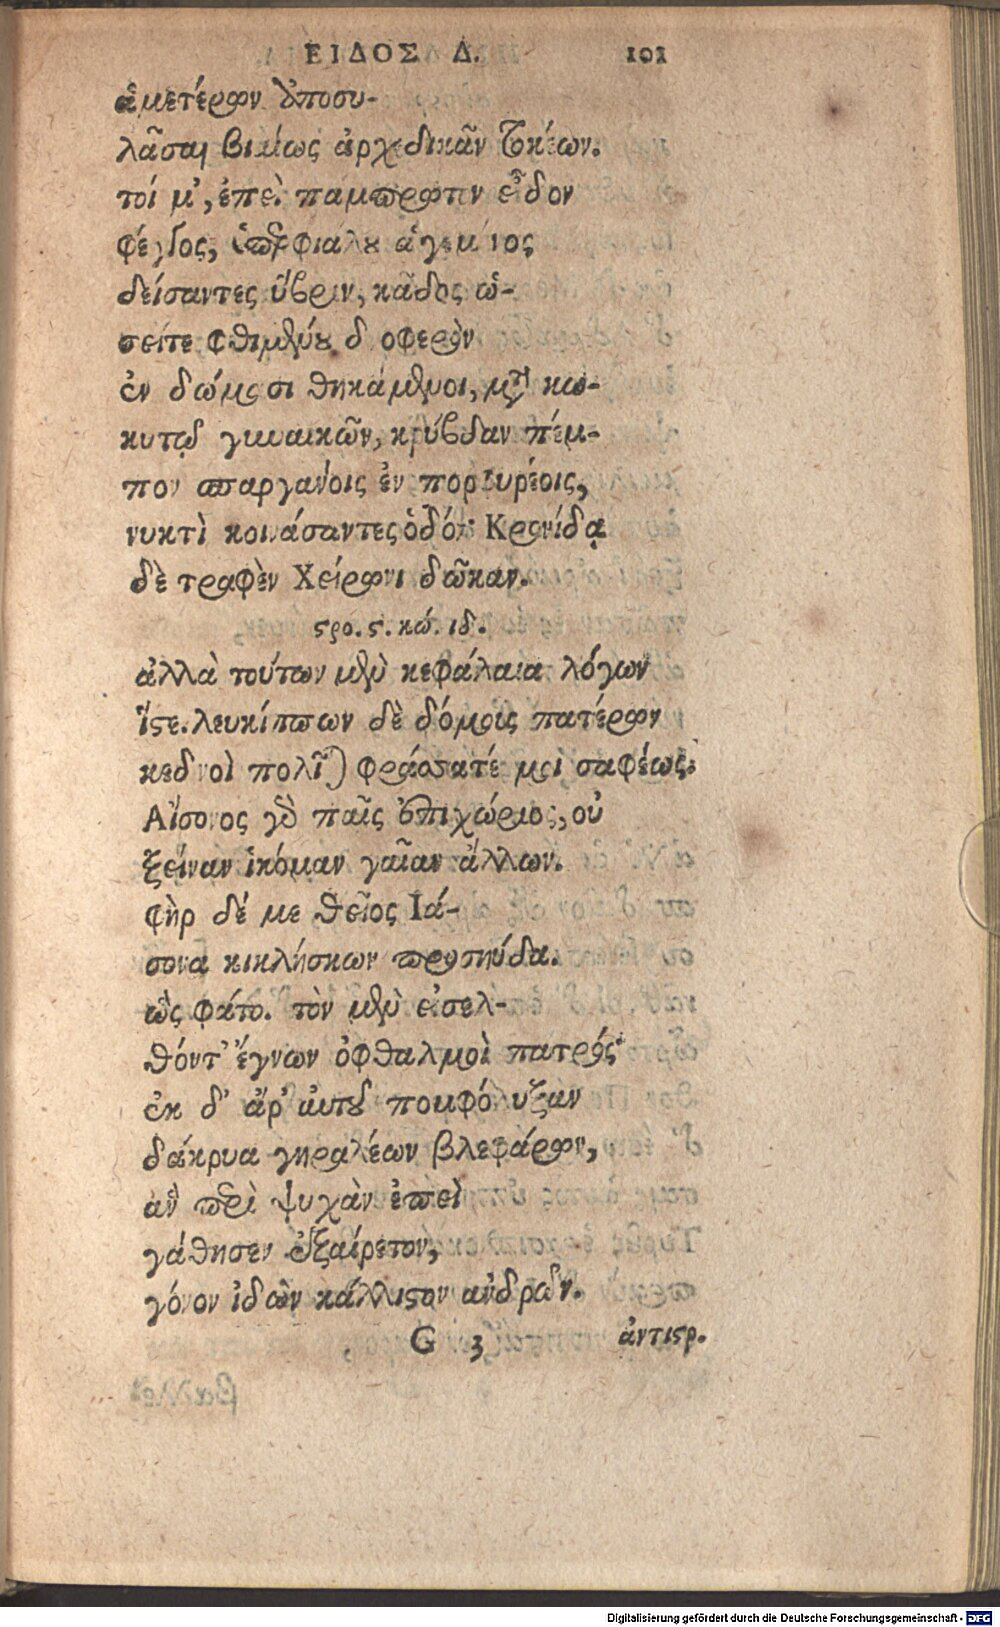 ΕΙΔΟΣ Δ. 101
ἁμετέρων ἀποσυ-
λᾶσαι βιαίως ἀρχεδικᾶν τοκέων.
τοί μ', ἐπεὶ πάμπρωτον εἶδον
φέγγος, ὑπερφιάλου ἁγεμόνος
δείσαντες ὕβριν, κᾶδος ὡ-
σείτε φθιμένου δνοφερὸν
ἐν δώμασι θηκάμενοι, μετὰ κω-
κυτῷ γυναικῶν, κρύβδαν πέμ-
πον σπαργάνοις ἐν πορφυρέοις,
νυκτὶ κοινάσαντες ὁδόν· Κρονίδᾳ
δὲ τραφὲν Χείρωνι δῶκαν.
στρο. ς. κώ. ιδ.
ἀλλὰ τούτων μὲν κεφάλαια λόγων
ἴστε. λευκίππων δὲ δόμοις πατέρων
κεδνοὶ πολῖται φράσσατέ μοι σαφέως.
Αἴσονος γὰρ παῖς ἐπιχώριος, οὐ
ξείναν ἱκόμαν γαῖαν ἄλλων.
φὴρ δέ με θεῖος Ἰά-
σονα κικλήσκων προσηύδα.
ὣς φάτο. τὸν μὲν εἰσελ-
θόντ' ἔγνων ὀφθαλμοὶ πατρός·
ἐκ δ' ἄρ' αὐτοῦ πομφόλυξαν
δάκρυα γηραλέων βλεφάρων,
ἃν περὶ ψυχὰν ἐπεὶ
γάθησεν ἐξαίρετον,
γόνον ἰδὼν κάλλιστον ἀνδρῶν.
G 3 ἀντιστρ.
Digitalisierung gefördert durch die Deutsche Forschungsgemeinschaft - DFG